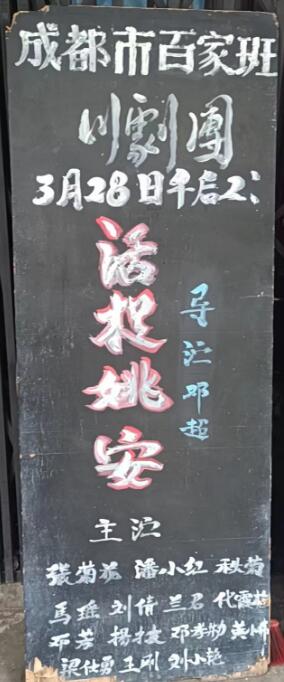 成都市百家班
川劇團
3月28日午后2:
活捉姚安
导演邓超
主演
張菊花 潘小红 秋菊
馬瑶 刘倩 兰君 代霞
邓芳 楊 邓孝 黄小
梁仕勇 王刚 刘小艳